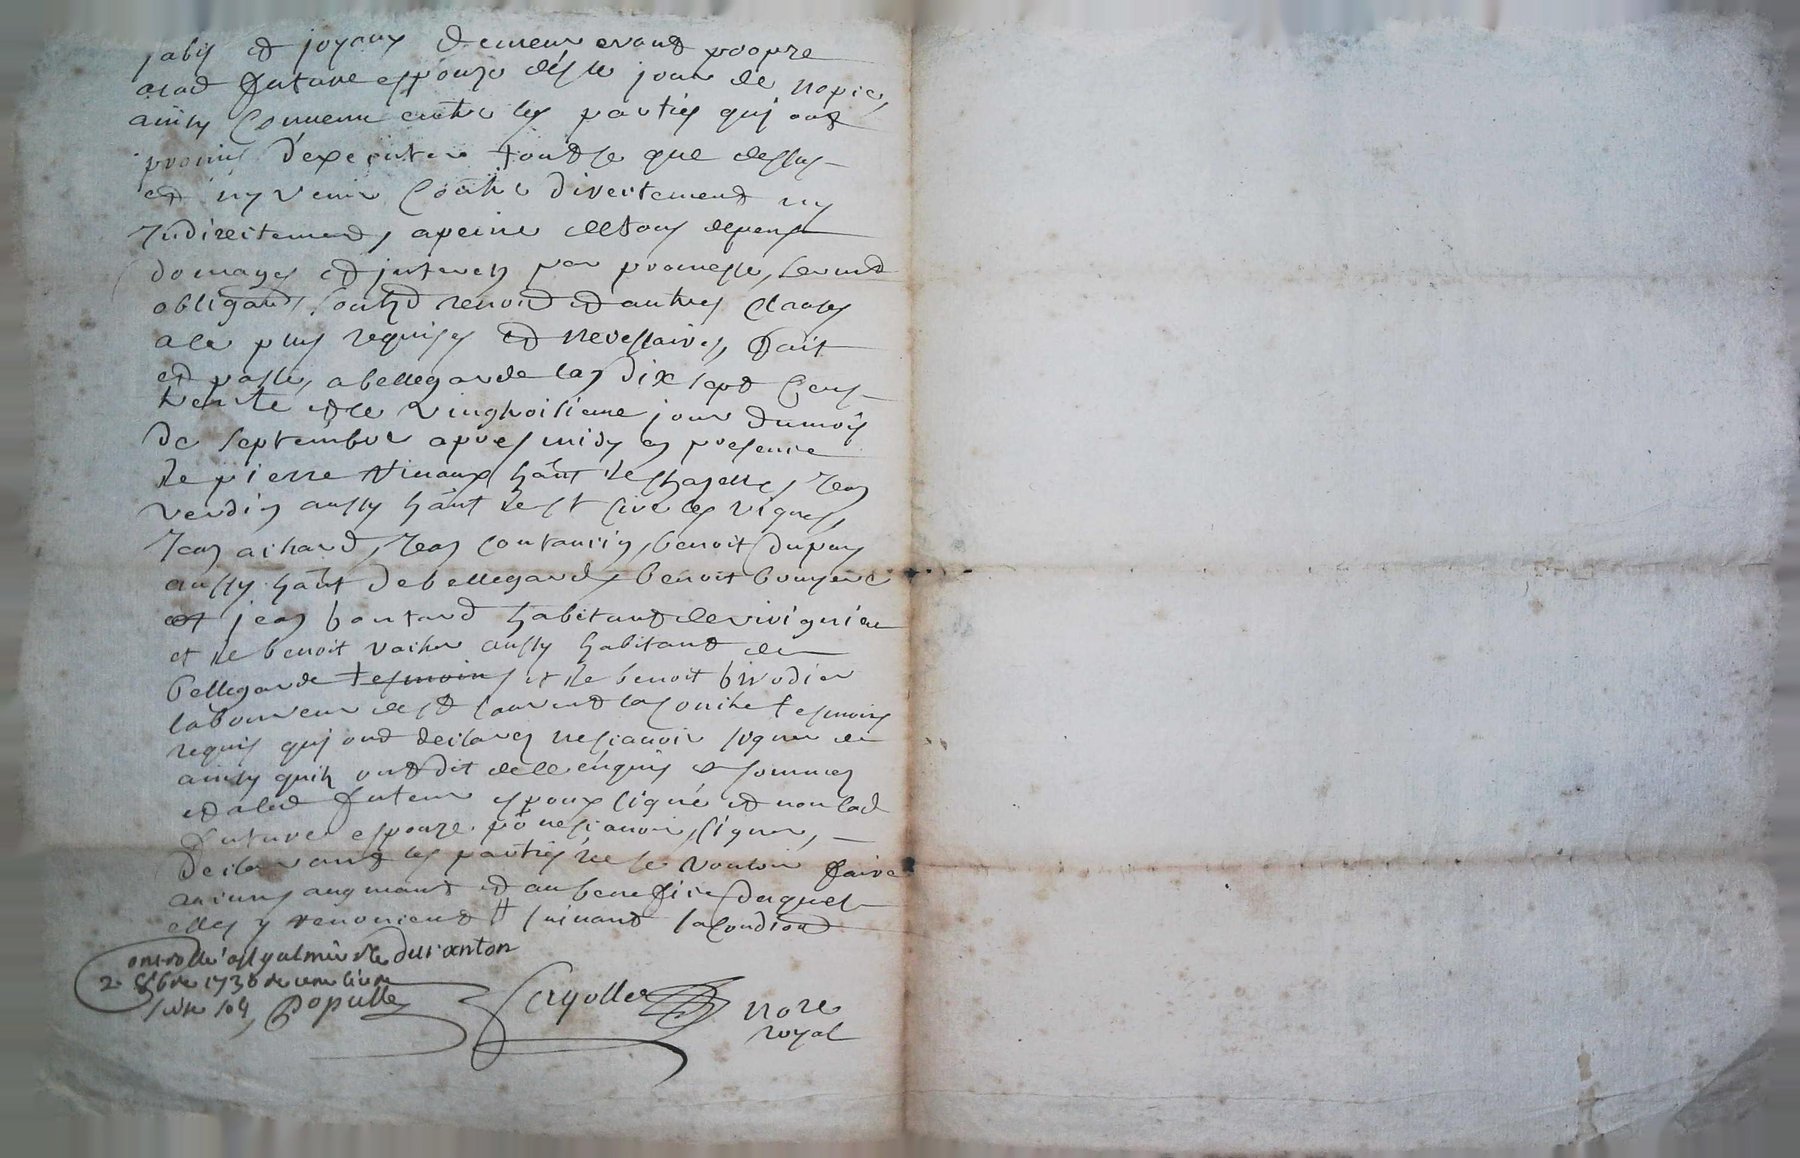 jabis et joyaux demeureront propre
alad future espouze dés le jour de nopce,
ainsy Convenu entre les parties qui ont
promis d'executer tout se que dessus
et ny venir Contre directement ny
Indirectement, apeine de tous depens
domages et interets par promesse, serment
obligaons, soubz renoion et autres Clauses
ale plus requises et necessaires, fait
et passé, abellegarde lan dix sept Cens
trente et le vingtroisieme jour dumois
de septembre apres midy en presence
de pierre hant de Jean
verdin aussy hant de st les vignes,
Jean achard, Jean contansin, benoit Dupuy
aussy hant de bellegarde benoit
et jean boutard habitant de
et de benoit aussy habitant de
bellegarde tesmoins et de benoit
laboureur de st laurent la conche tesmoins
requis qui ont declarez ne scavoir signer de
ainsy quilz ont dit de ce enquis et sommez
et aled futeur espoux signé et non lad
future espouze pô ne scavoir signer,
declarant les parties ne se vouloir faire
aucuns augmant et au benefice duquel
elles y renoncent suivant la
ontrollé a st galmier
2 8bre 1730
nore
royal